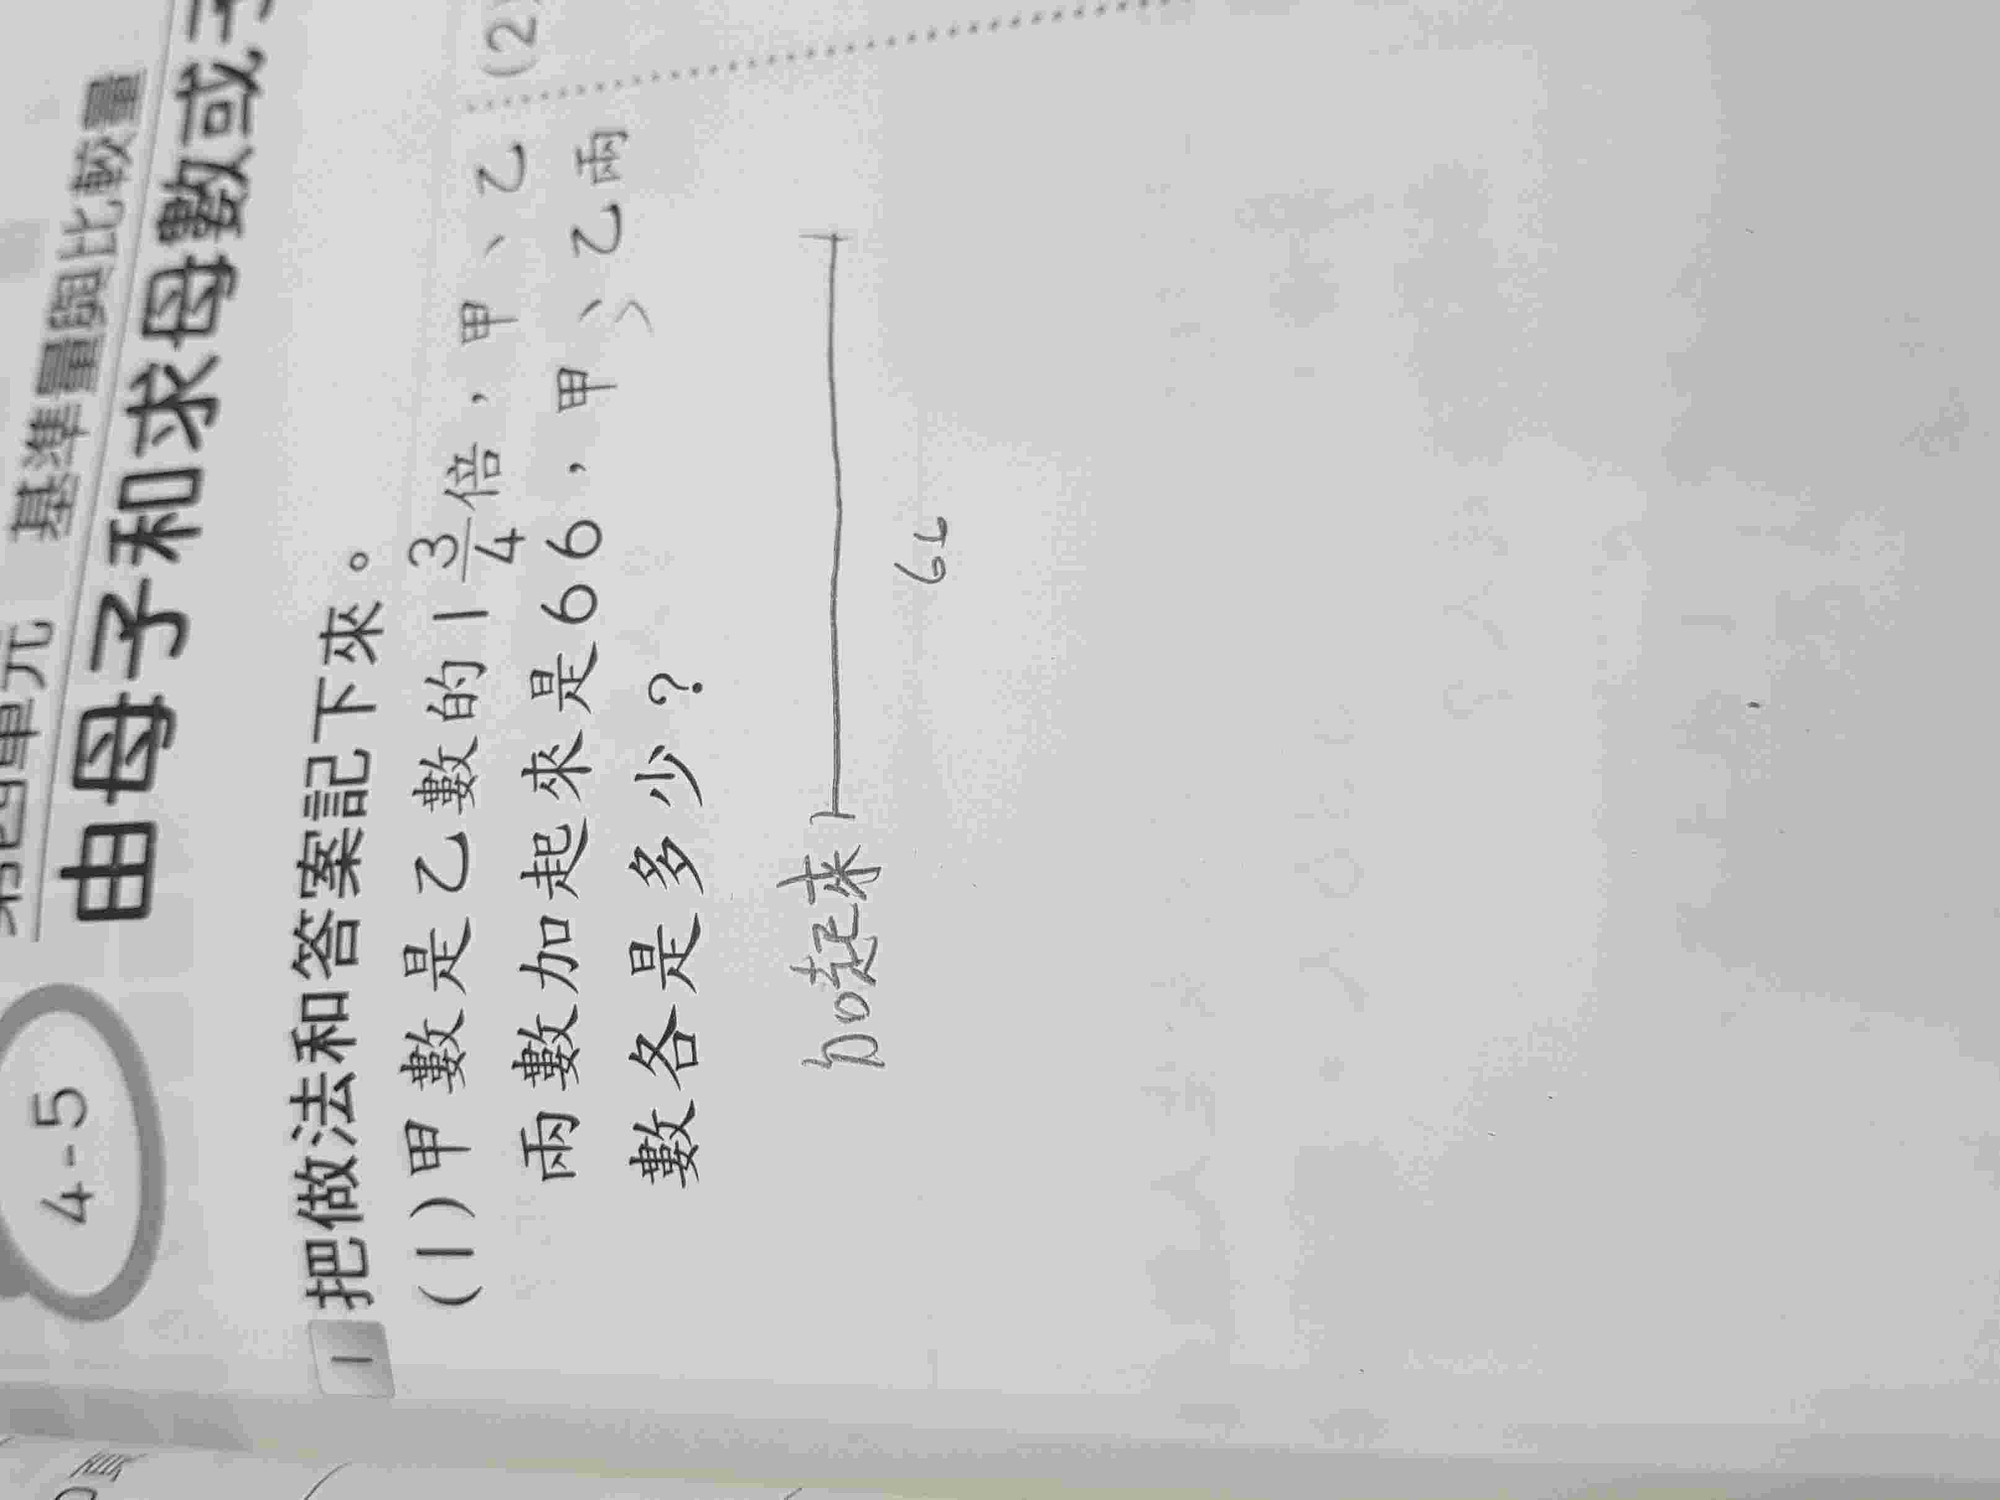 4-5
單元 基準量與比較量
由母子和求母數或
1 把做法和答案記下來。
(1)甲數是乙數的1 3/4倍,甲、乙
兩數加起來是66,甲、乙兩
數各是多少?
(2)
加起来
66